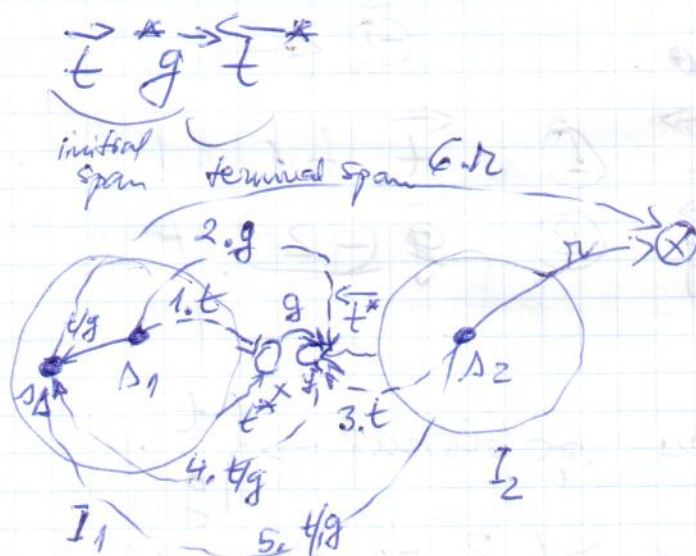 t⃗ *g→ t⃖*
initial span
terminal span
6. r
2. g
r
⊗
t/g
1. t
g
t⃖*
s₁
s₂
t*
3. t
4. t/g
I₁
5. t/g
I₂